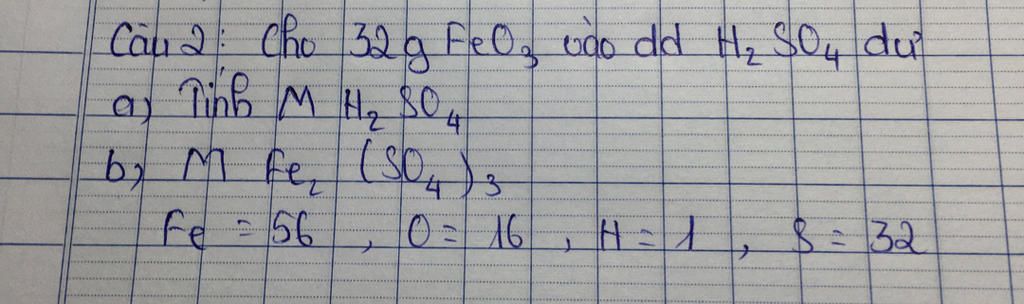 Câu 2: Cho 32g FeO₃ vào dd H₂SO₄ dư
a) Tính M H₂SO₄
b) M Fe₂(SO₄)₃
Fe = 56, O = 16, H = 1, S = 32